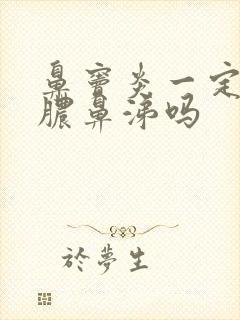 鼻窦炎一定
脓鼻涕吗
於夢生